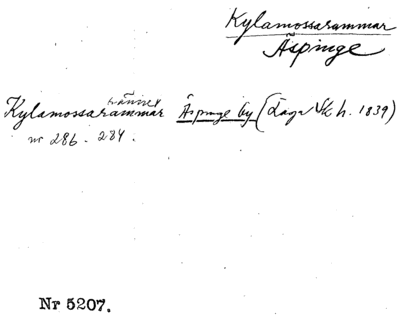 Kylamossarammar
Äspinge
Kylamossarammar Äspinge by (Laga Sk h. 1839)
nr 286 - 284
Nr 5207.